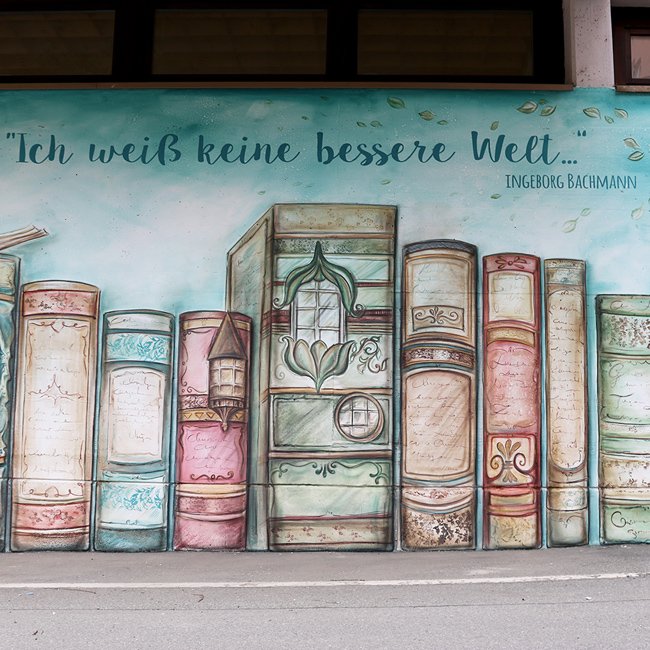 "Ich weiß keine bessere Welt..."
INGEBORG BACHMANN